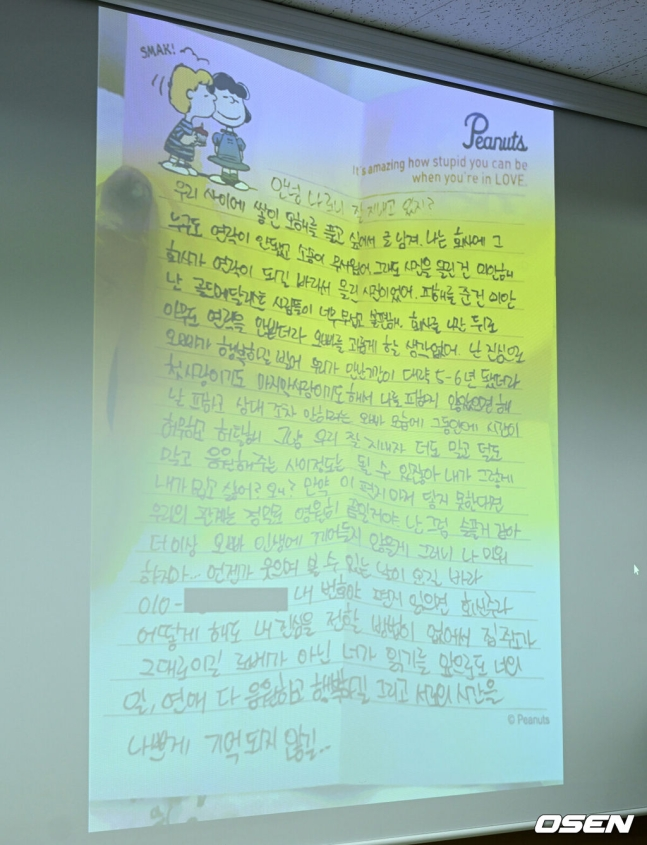 SMAK!
Peanuts
It's amazing how stupid you can be
when you're in LOVE.
안녕 나 잘 지내고 있지?
우리 사이에 쌓인 오해를 풀고 싶어서 글 남겨. 나는 회사에 그
누구도 연락이 안됐고 소송이 무서웠어 그래도 사진을 올린 건 미안해
회사가 연락이 되길 바라서 올린 사진이었어. 피해를 준건 미안
난 골드메달리스트 사람들이 너무 무섭고 불편해. 회사를 나간 뒤로
아무도 연락을 안받더라 오빠를 괴롭게 할 생각없어. 난 진심으로
오빠가 행복하길 빌어 우리가 만난기간이 대략 5-6년 됐더라
첫사랑이기도 마지막사랑이기도 해서 나를 피하지 않았으면 해
날 피하고 상대 조차 안하려는 오빠 모습에 그동안에 시간이
허무하고 허탈해 그냥 우리 잘 지내자 더도 말고 덜도
말고 응원해주는 사이정도는 될 수 있잖아 내가 그렇게
내가 밉고 싫어? 왜? 만약 이 편지마저 닿지 못한다면
우리의 관계는 정말로 영원히 끝일거야 난 그럼 슬플거 같아
더이상 오빠 인생에 끼어들지 않을게 그러니 나 미워
하지마... 언젠가 웃으며 볼 수 있는 날이 오길 바라
010- 내 번호야 편지 읽으면 회신주라
어떻게 해도 내 진심을 전할 방법이 없어서 집 주소가
그대로이길 로베가 아닌 너가 읽기를 앞으로도 너의
일, 연애 다 응원하고 행복하길 그리고 서로의 시간을
나쁘게 기억 되지 않길..
© Peanuts
OSEN